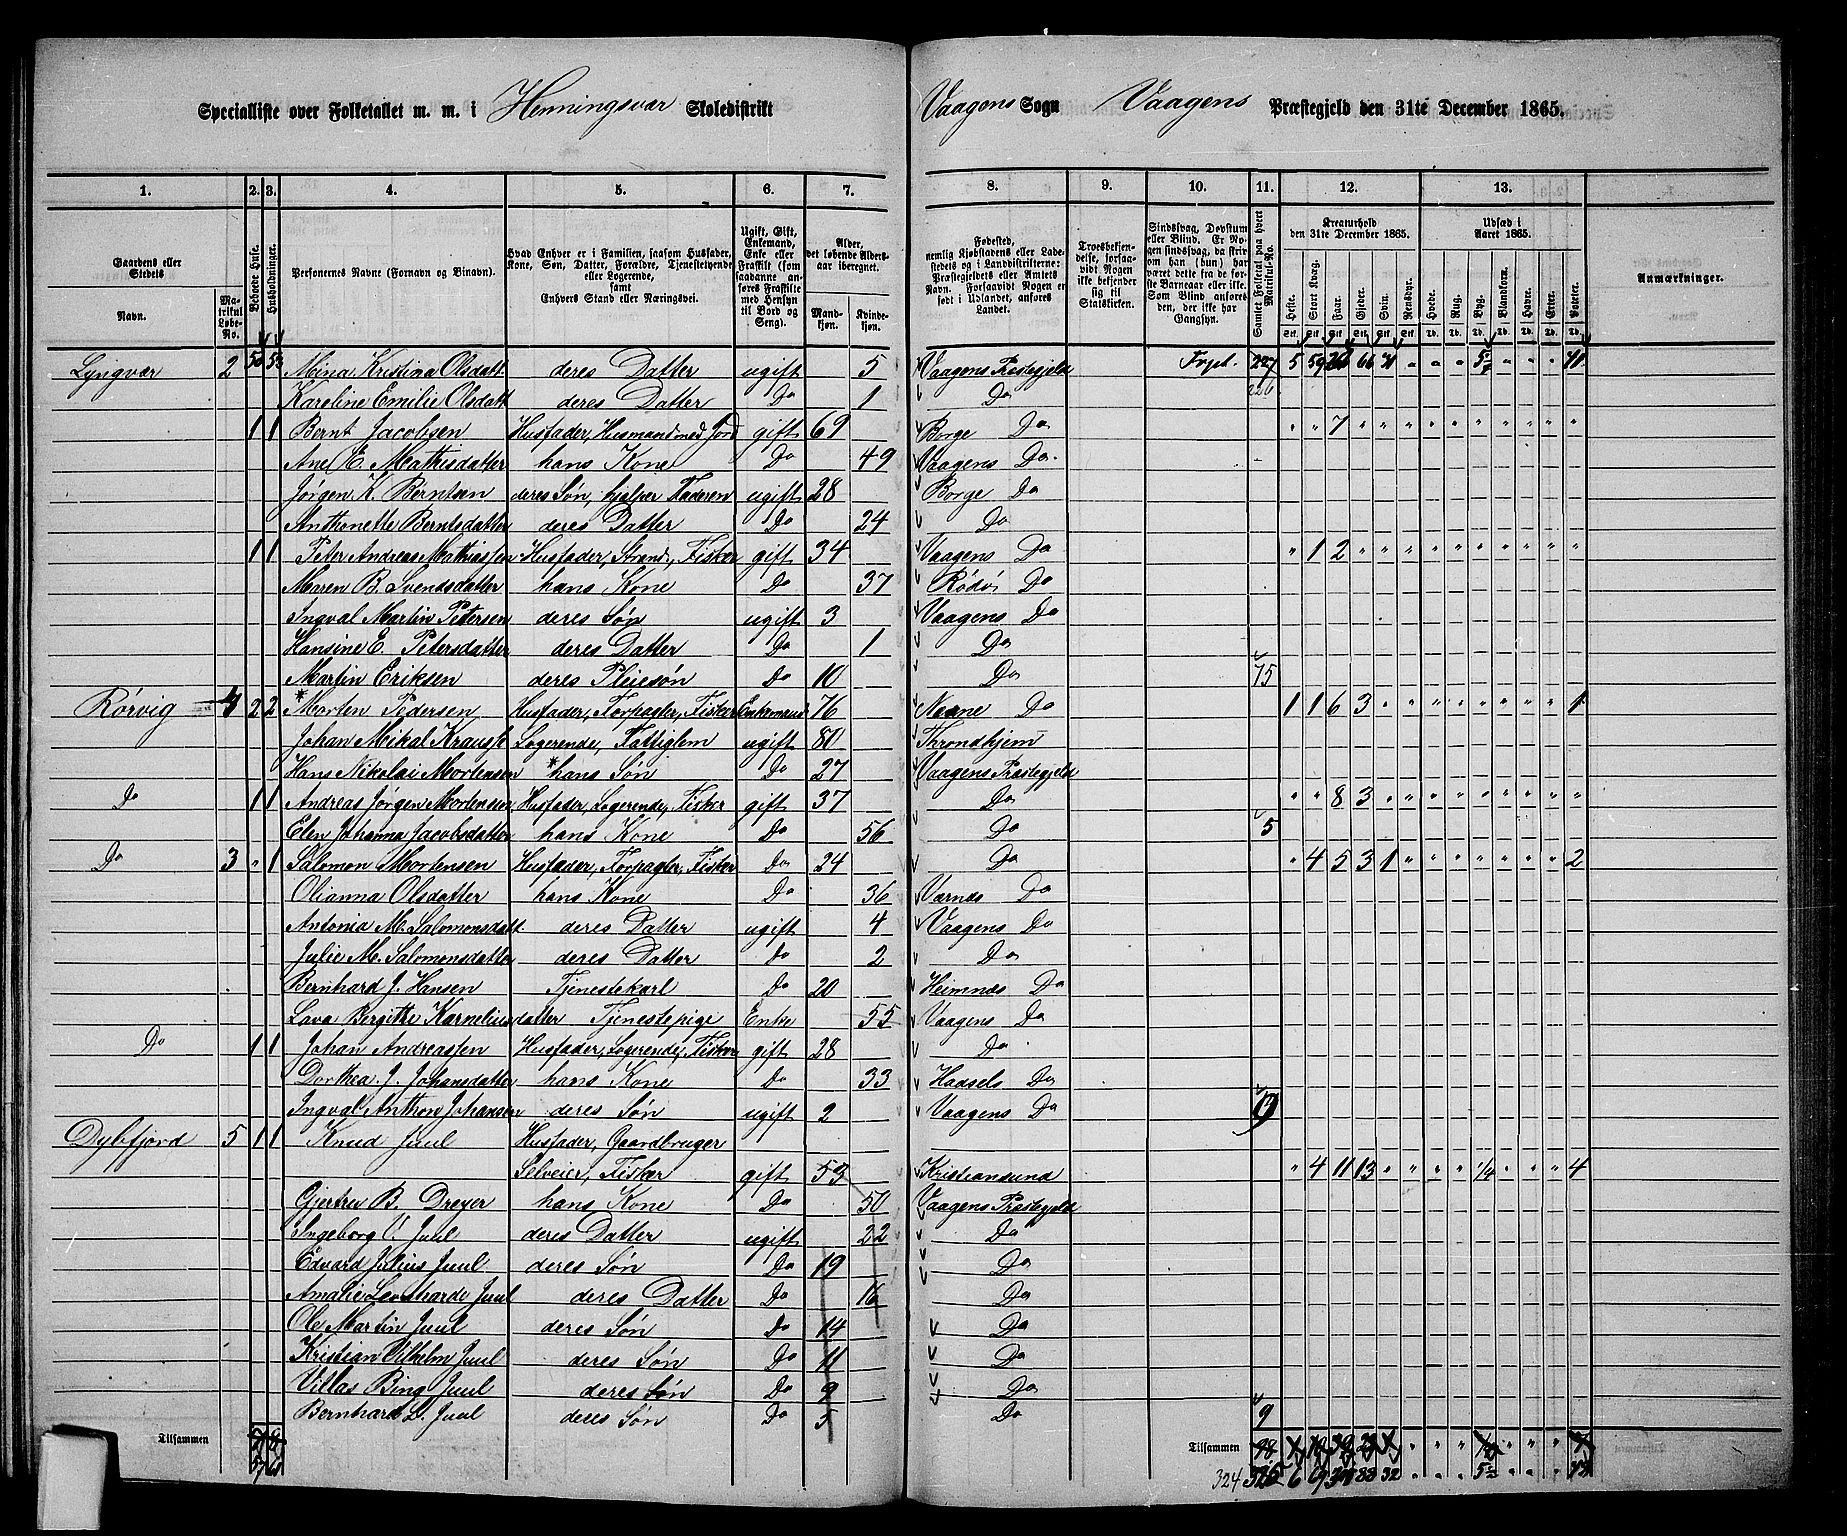 Specialliste over Folketallet m. m. i Henningsvær Skoledistrikt Vaagens Sogn Vaagens Præstegjeld den 31te December 1865.
1. 2. 3. 4. 5. 6. 7. 8. 9. 10. 11. 12. 13.
Gaardens eller Stedets Navn. Matrikul Løbe-No. Beboede Huse. Husholdninger. Personernes Navne (Fornavn og Binavn). Hvad Enhver er i Familien, saasom Husfader, Kone, Søn, Datter, Forældre, Tjenestetyende eller Logerende, samt Enhvers Stand eller Næringsvei. Ugift, Gift, Enkemand, Enke eller Fraskilt (som saadanne anføres Fraskilte med Hensyn til Bord og Seng). Alder, det løbende Alders-aar iberegnet. Mand-kjøn. Kvinde-kjøn.
Fødested, nemlig Kjøbstadens eller Ladestedets og i Landdistrikterne: Præstegjeldets eller Amtets Navn. Forsaavidt Nogen er født i Udlandet, anføres Landet. Troesbekjendelse, forsaavidt Nogen ikke bekjender sig til Statskirken. Sindssvag, Døvstum eller Blind. Er Nogen sindssvag, da skriv om han (hun) har været dette fra de første Barneaar eller ikke. Som Blind anføres den, der ikke har Gangsyn. Samlet Folketal paa hvert Matrikul-No. Kreaturhold den 31te December 1865. Heste. Stort Kvæg. Faar. Gjeder. Sviin. Rensdyr. Udsæd i Aaret 1865. Hvede. Rug. Byg. Blandkorn. Havre. Erter. Poteter. Anmærkninger.
Lyngvær 2 50 53 Mina Kristina Olsdatt deres Datter ugift 5 Vaagens Præstegjeld Frpt. 227 5 59 66 31 " " " " " "
Kareline Emilie Olsdatt deres Datter Do 1 Do 226
1 1 Bernt Jacobsen Husfader, Husmand med Jord gift 69 Borge Do " " 7 " " " " " " " " " "
Ane E. Mathisdatter hans Kone Do 49 Vaagens Do
Jørgen K. Berntsen deres Søn, hjelper Faderen ugift 28 Borge Do
Anthonette Berntsdatter deres Datter Do 24 Do
1 1 Peter Andreas Mathiassen Husfader, Strands., Fisker gift 34 Vaagens Do " 1 2 " " " " " " " " " "
Maren B. Svendsdatter hans Kone Do 37 Rødø Do
Ingval Martin Petersen deres Søn ugift 3 Vaagens Do
Hansine E. Petersdatter deres Datter Do 1 Do
Martin Eriksen deres Pleiesøn Do 10 Do 75
Rørvig 4 2 2 *Morten Pedersen Husfader, Forpagter, Fisker Enkemand 76 Næsne Do 1 1 6 3 " " " " " " " " 1
Johan Mikal Krausk Logerende, Fattiglem ugift 80 Throndhjem
Hans Nikolai Mortensen *hans Søn Do 27 Vaagens Præstegjeld
Do 1 1 Andreas Jørgen Mortensen Husfader, Logerende, Fisker gift 37 Do " " 8 3 " " " " " " " " "
Elen Johanna Jacobsdatter hans Kone Do 56 Do 5
Do 3 " 1 Salomon Mortensen Husfader, Forpagter, Fisker Do 24 Do " 4 5 3 1 " " " " " " " 2
Olianna Olsdatter hans Kone Do 36 Værnæs Do
Antonia M. Salomonsdatt deres Datter ugift 4 Vaagens Do
Julie M. Salomonsdatter deres Datter Do 2 Do
Bernhard J. Hansen Tjenestekarl Do 20 Heimnæs Do
Lava Bergitte Karneliusdatter Tjenestepige Enke 55 Vaagens Do
Do 1 1 Johan Andreassen Husfader, Logerende, Fisker gift 28 Do
Dorthea J. Johansdatter hans Kone Do 33 Hadsels Do
Ingval Anthon Johansen deres Søn ugift 2 Vaagens Do 9
Dybfjord 5 1 1 Knud Juul Husfader, Gaardbruger
Selveier, Fisker gift 53 Kristiansund " 4 11 13 " " " " 1/4 " " " 4
Gjertru B. Dreyer hans Kone Do 50 Vaagens Præstegjeld
Ingeborg O. Juul deres Datter ugift 22 Do
Edvard Julius Juul deres Søn Do 19 Do
Amalie Leonharde Juul deres Datter Do 16 Do
Ole Martin Juul deres Søn Do 14 Do
Kristian Vilhelm Juul deres Søn Do 11 Do
Villas Bing Juul deres Søn Do 9 Do
Bernhard L. Juul deres Søn Do 5 Do 9
Tilsammen Tilsammen 98
324 325 6 88 32